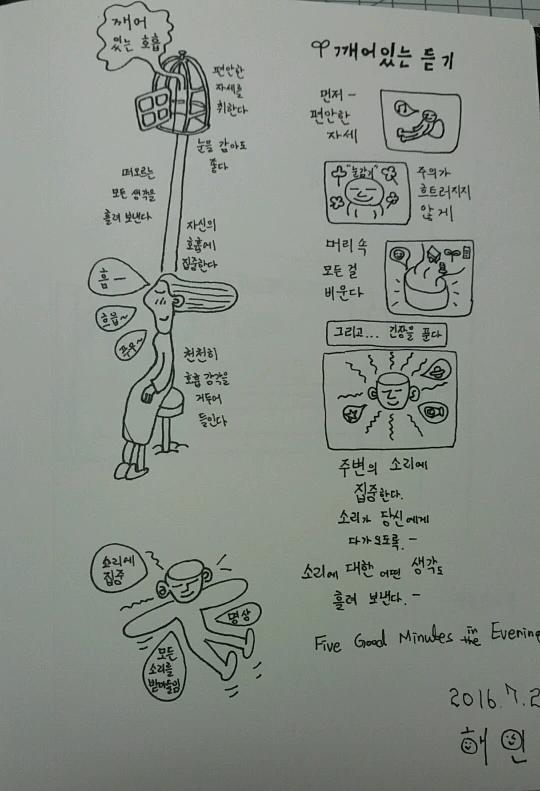 깨어
있는 호흡
편안한
자세를
취한다
눈을 감아도
좋다
떠오르는
모든 생각을
흘려 보낸다
자신의
호흡에
집중한다
흠ㅡ
흐읍~
푸우~
천천히
호흡 감각을
거두어
들인다
소리에
집중
명상
모든
소리를
받아들임
깨어있는 듣기
먼저 -
편안한
자세
"눈감기"
주의가
흐트러지지
않게
머리 속
모든 걸
비운다
그리고... 긴장을 푼다
주변의 소리에
집중한다.
소리가 당신에게
다가오도록. -
소리에 대한 어떤 생각도
흘려 보낸다. -
Five Good Minutes in the Evening
2016.7.2
해인